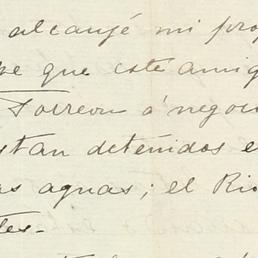 alcanzé mi pro
que que este amig
Torreon á negoci
stan deteñidos e
as aguas; el Rio
tes.-